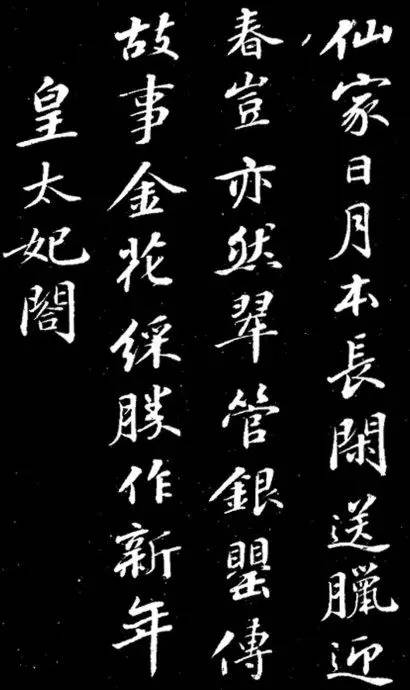 仙家日月本長閑送臘迎
春豈亦然翠管銀罌傳
故事金花綵勝作新年
皇太妃閤